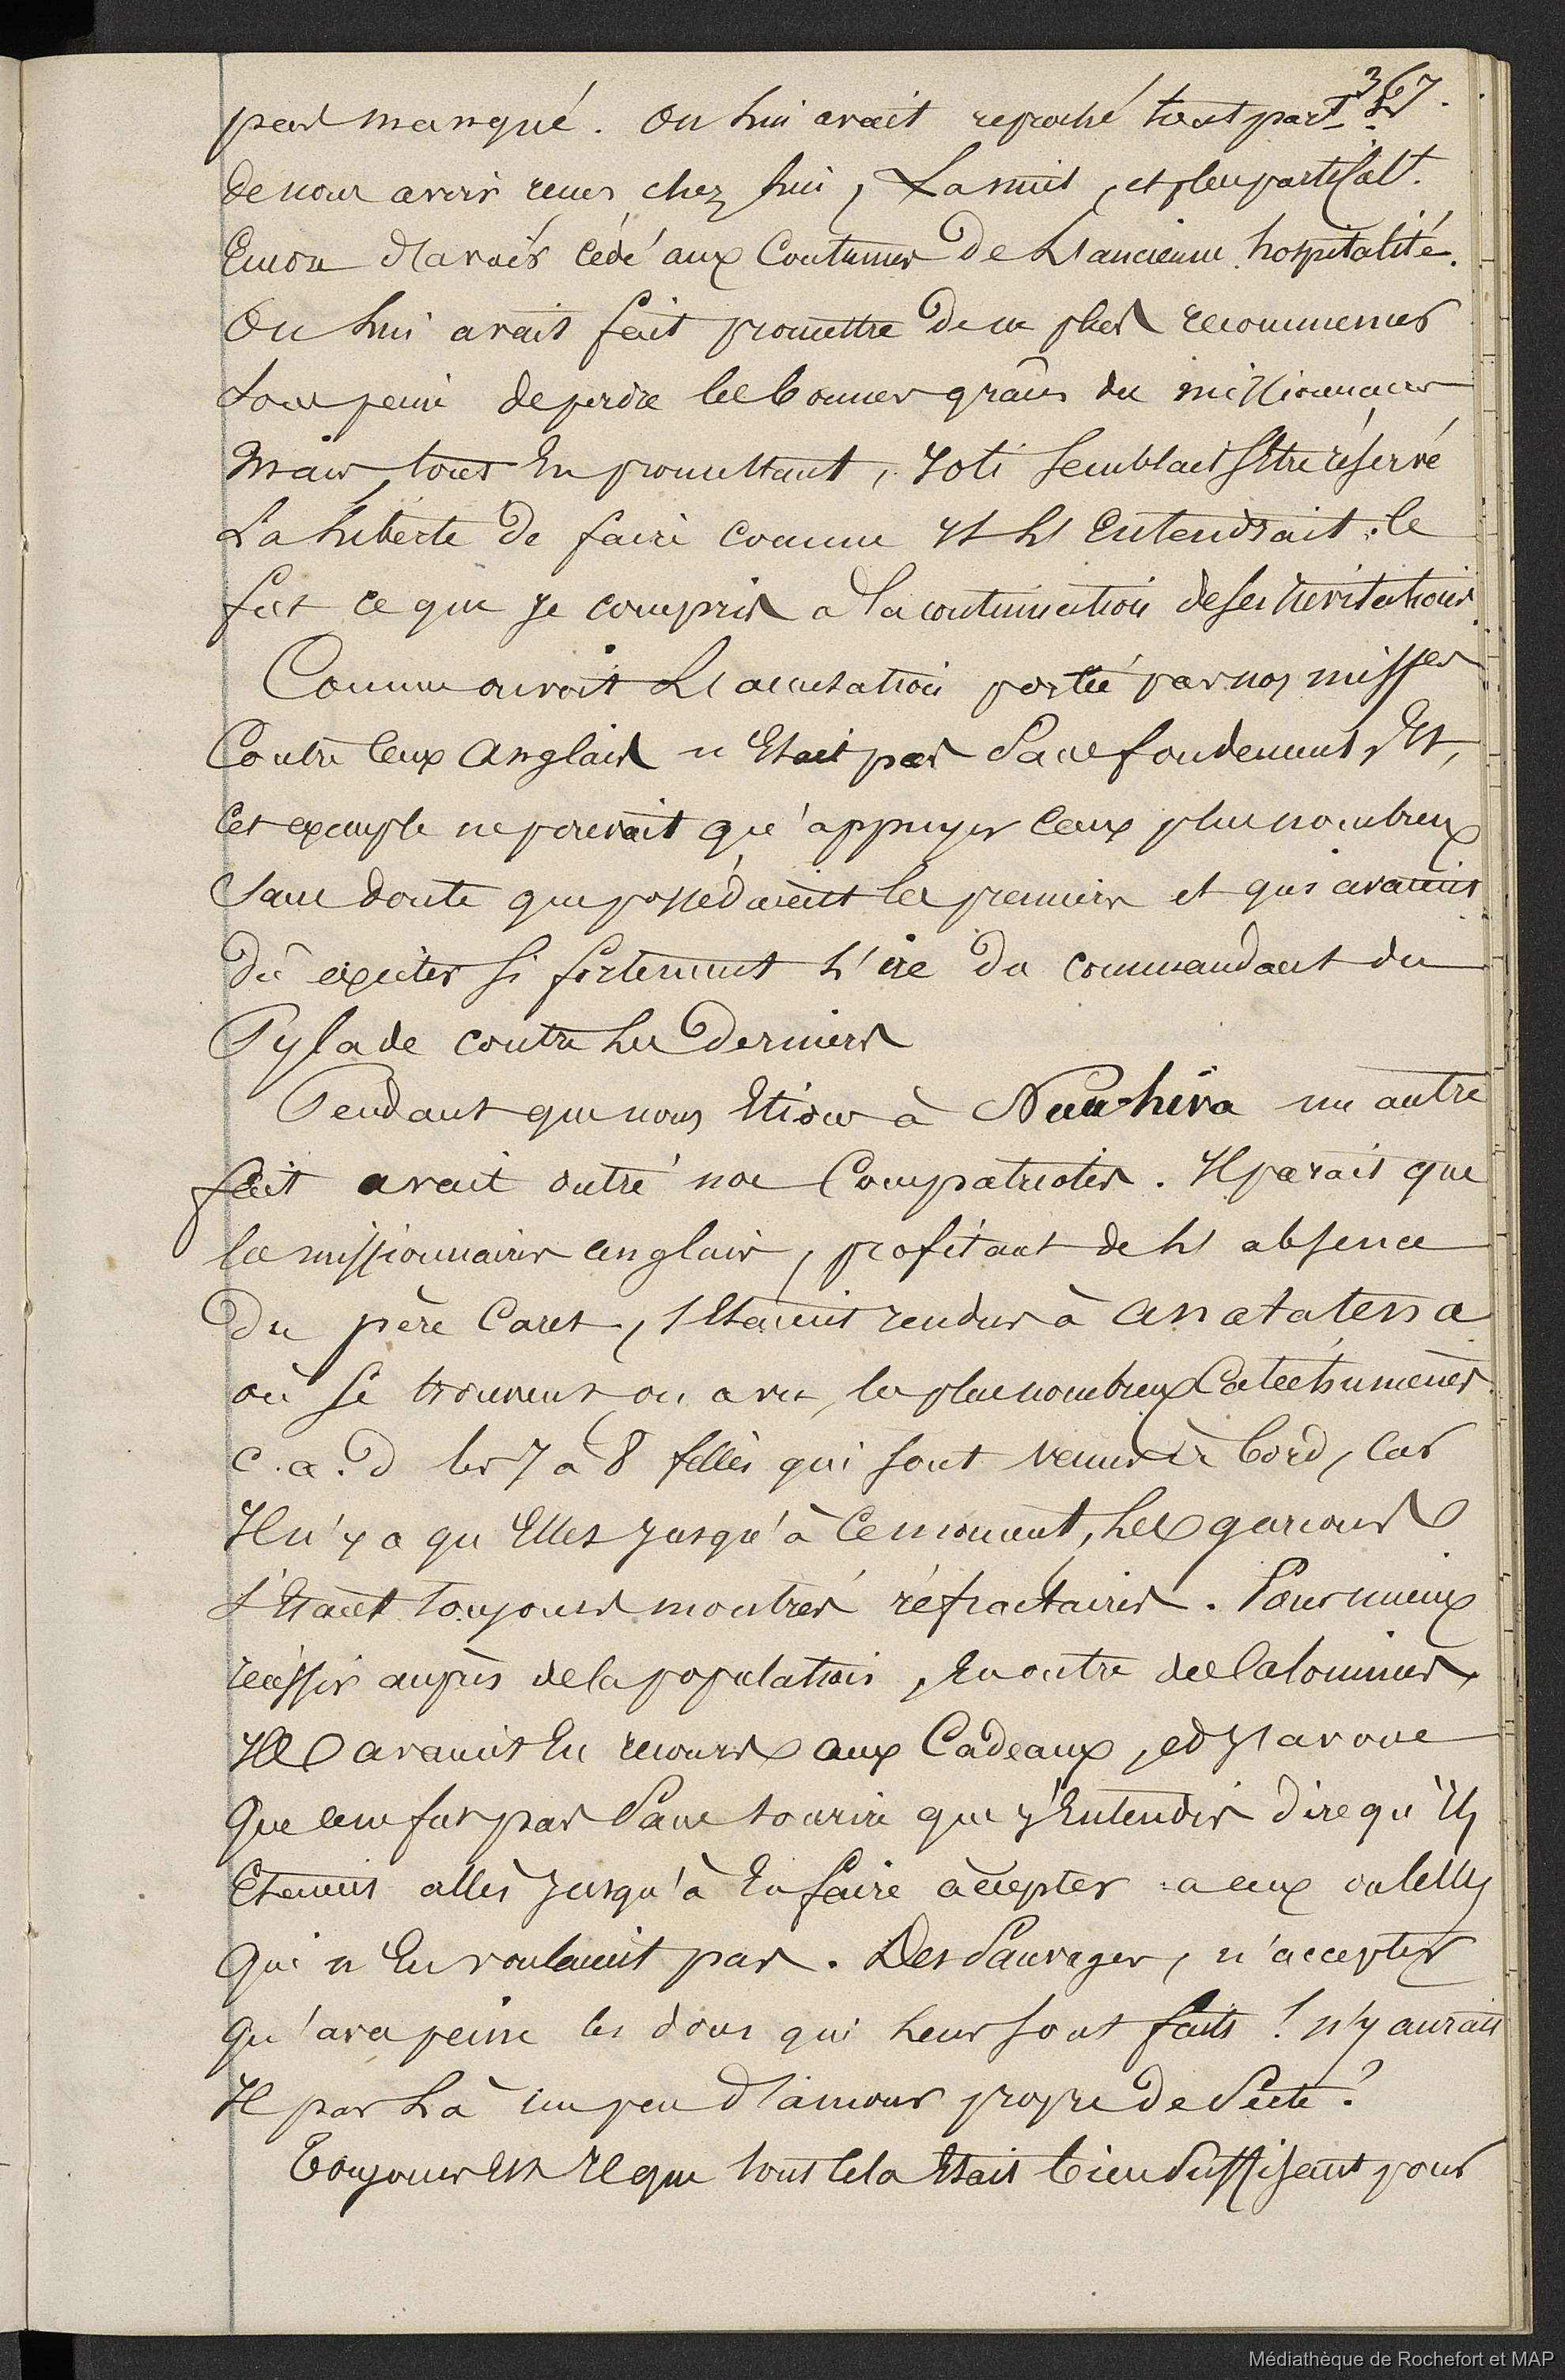 367.
pas manqué. On lui avait reproché tout partt
de nous avoir reçus chez lui, La nuit, et plus partilt.
Encore d'avoir cédé aux Coutumes De L'ancienne hospitalité.
On lui avait fait promettre de ne plus recommencer
Sous peine de perdre les bonnes grâces des missionnaires
Mais, tout En promettant, Yoti semblait s'être réservé
La liberté De faire comme Il L'Entendrait: ce
fut ce que Je compris a la continuation de ses invitations.
Comme on voit L'accusation portée par nos missres
Contre ceux anglais n'Etait pas Sans fondement, Et,
Cet exemple ne pouvait qu'appuyer ceux plus nombreux
Sans doute que possédaient les premiers et qui avaient
Dû exciter si fortement l'ire du commandant du
Pylade contre les Derniers
Pendant que nous Etions à Nuu-hiva un autre
fait avait outré nos Compatriotes. Il parait que
les missionnaires anglais, profitant de L'absence
Du père Caret, s'Etaient rendus à anatatena
où se trouvent, on a vu, les plus nombreux Catéchumènes
c. a. d les 7 a 8 filles qui sont venues à bord, Car
Il n'y a qu'Elles Jusqu'à Ce moment, Les garçons
s'Etant toujours montrés réfractaires. Pour mieux
réussir auprès de la population, En outre des Calomnies,
Ils avaient Eu recours aux Cadeaux, et J'avoue
Que ce ne fut pas Sans sourire que J'Entendis dire qu'Ils
Etaient allés Jusqu'à En faire accepter a ceux ou celles
Qui n'En voulaient pas. Des Sauvages, n'accepter
Qu'avec peine les dons qui leur sont faits! n'y aurait
Il pas Là un peu d'amour propre De Secte?
Toujours Est Il que tout Cela Etait bien Suffisant pour
Médiathèque de Rochefort et MAP